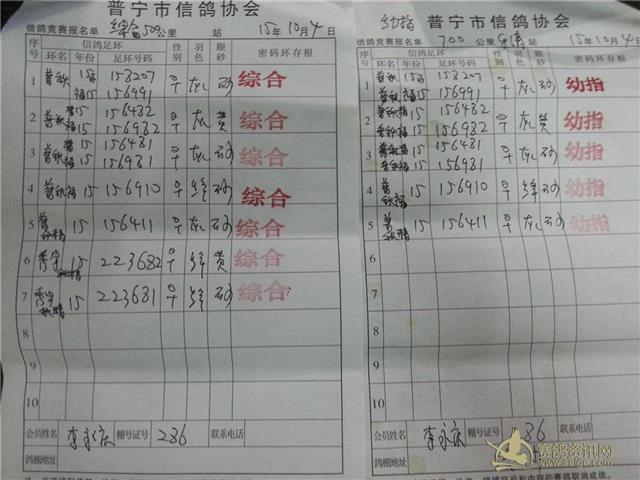 普宁市信鸽协会
信鸽竞赛报名单 综合500公里 站 15年10月4日
序号 信鸽足环 性别 羽色 眼砂 密码环存根
环名 年份 足环号码
1 普秋 15 158207 灰 砂 综合
福15 156991
2 普 15 156482 灰 黄 综合
秋福 15 156982
3 普 15 156481 灰 砂 综合
福 15 156981
4 普秋福 15 156910 绛 砂 综合
5 普秋精 15 156411 灰 砂 综合
6 15 223682 绛 黄 综合
7 15 223681 绛 砂 综合
8
9
10
会员姓名 李永庆 棚号证号 286 联系电话
鸽棚地址
幼指 普宁市信鸽协会
信鸽竞赛报名单 700公里 站 15年10月4日
序号 信鸽足环 性别 羽色 眼砂 密码环存根
环名 年份 足环号码
1 普秋 15 158207 灰 砂 幼指
福15 156991
2 普 15 156482 灰 黄 幼指
普秋福 15 156982
3 普秋 15 156481 灰 砂 幼指
普秋福 15 156981
4 普秋福 15 156910 绛 砂 幼指
5 普秋 15 156411 灰 砂 幼指
6
7
8
9
10
会员姓名 李永庆 棚号证号 86 联系电话
鸽棚地址
赛鸽资讯网